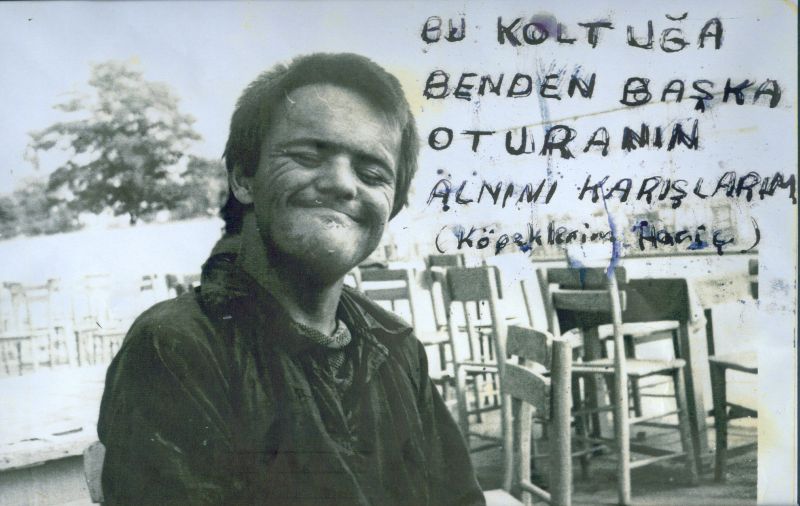 BU KOLTUĞA
BENDEN BAŞKA
OTURANIN
ALNINI KARIŞLARIM
(Köpeklerim Hariç)